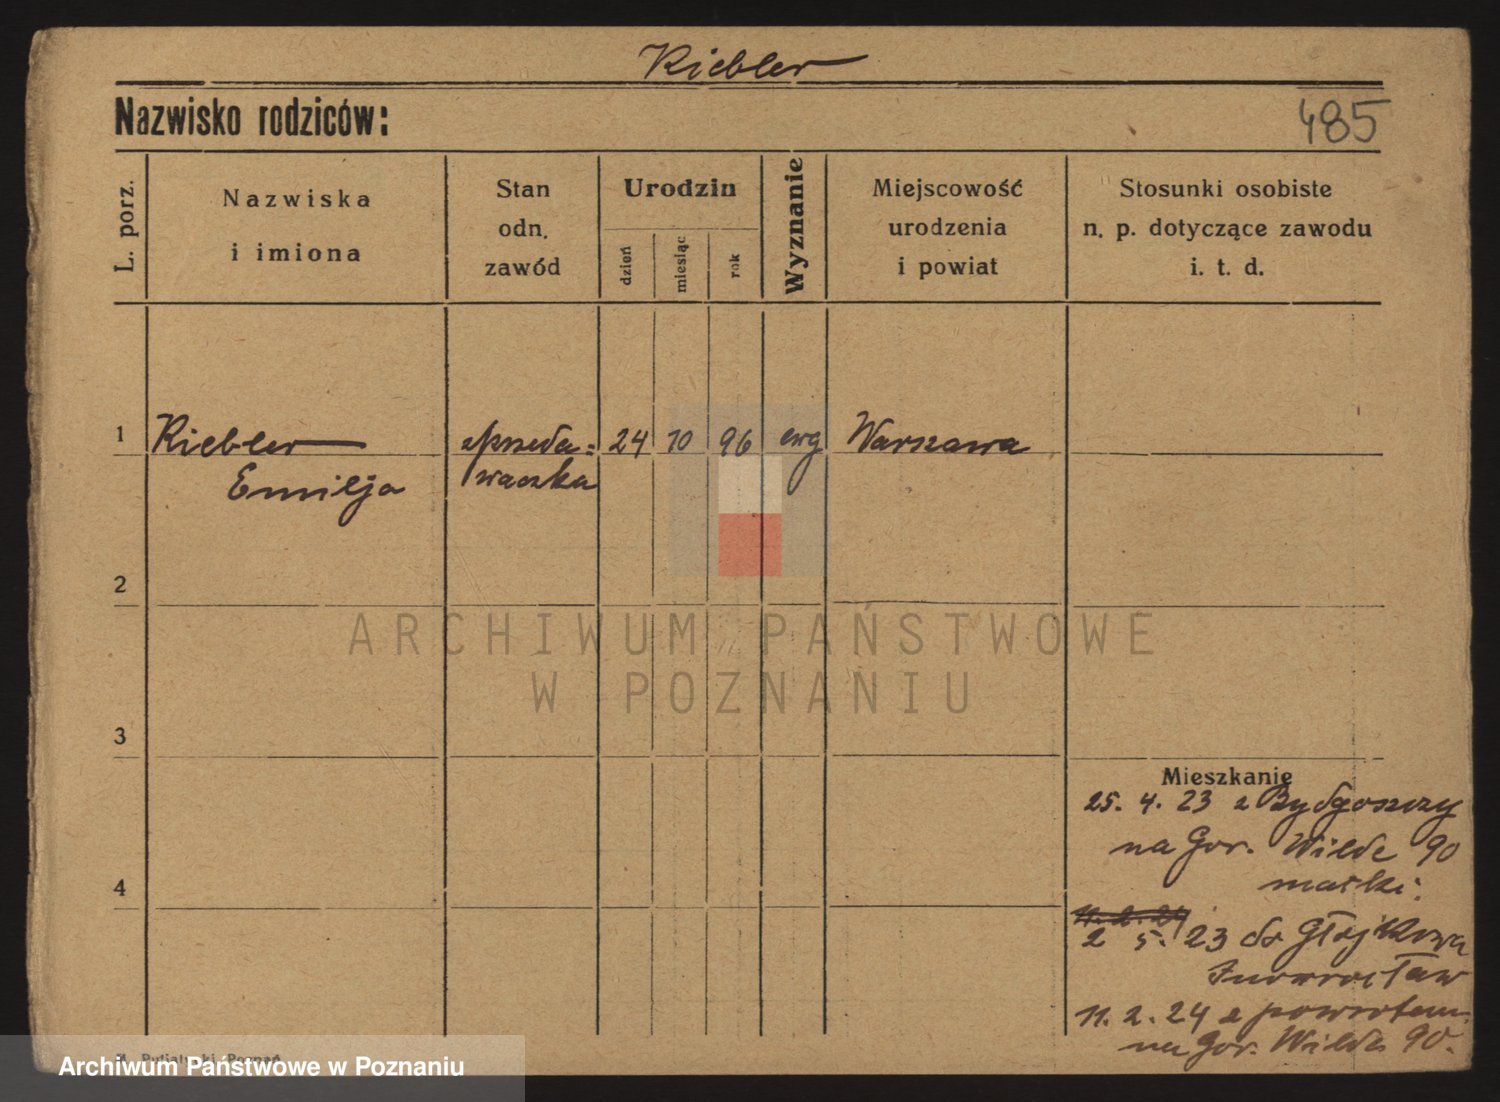 Kiebler
Nazwisko rodziców:
485
L. porz.
Nazwiska
i imiona
Stan
odn.
zawód
Urodzin
dzień
miesiąc
rok
Wyznanie
Miejscowość
urodzenia
i powiat
Stosunki osobiste
n. p. dotyczące zawodu
i. t. d.
1 Kiebler sprzeda= 24 10 96 ewg Warszawa
Emilja waczka
2
ARCHIWUM PAŃSTWOWE
W POZNANIU
3
Mieszkanie
25. 4. 23 z Bydgoszczy
na Gor. Wilde 90
matki:
4
11. 2. 24
2 5. 23 do
Inowrocław
11. 2. 24 z powrotem
na Gor. Wilda 90.
Poznań
Archiwum Państwowe w Poznaniu